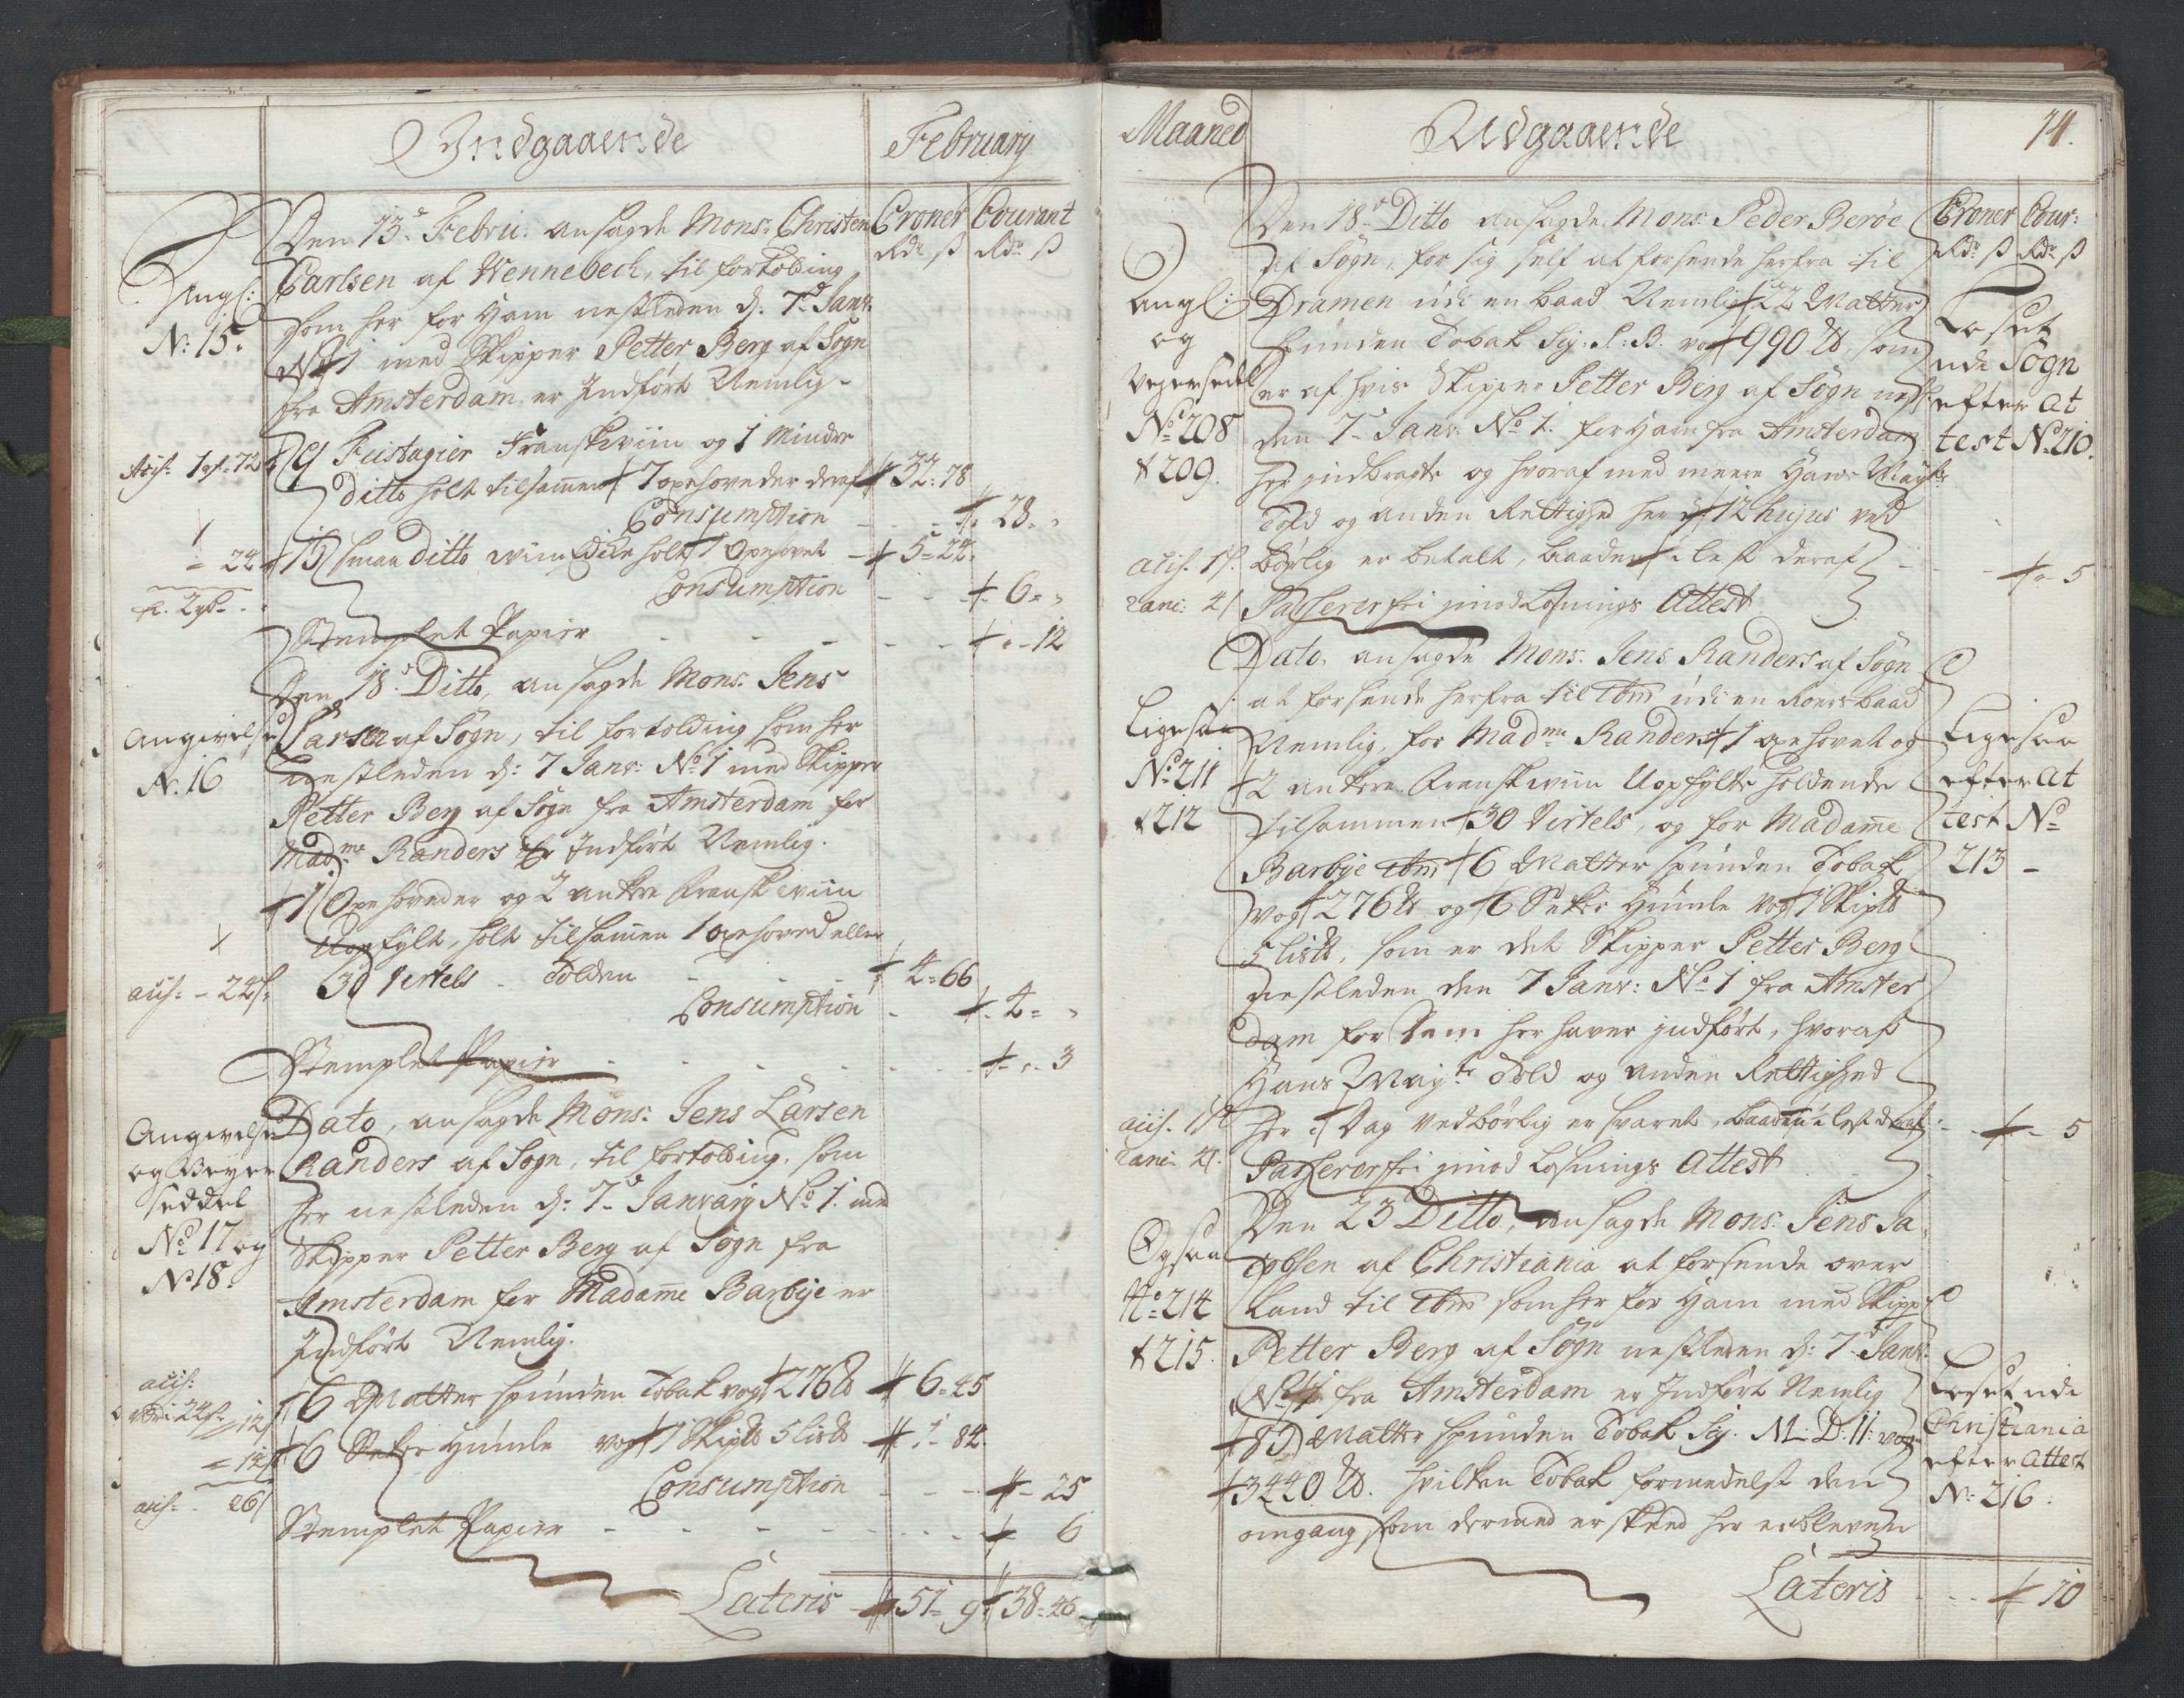 Indgaaende
February
Croner Courant
Rdr ß Rdr ß
Angl:
No: 15.
Den 13d Febru: ansagde Mons: Christen
Carlsen af Wennebech, til fortolding
som her for Ham nestleden d: 7d Janr:
No 1 med Skipper Petter Berg af Sogn
fra Amsterdam er Indført Nemlig
9 Fustagier Franskviin og 1 Mindre
ditto holt tilsamen 7 oxehoveder deraf 32: 78
Consumption - - - 28 - -
15 smaa ditto viin holt 1 Oxehovet - 5 - 22
Consumption - - 6 - -
Stemplet Papier - - - - - 12
Angivelse
No: 16
Den 18d Ditto, ansagde Mons: Jens
Larsen af Sogn, til fortolding som her
nestleden d: 7 Janv: No 1 med Skipper
Petter Berg af Sogn fra Amsterdam for
Madme Randers er Indført Nemlig.
1 Oxehoveder og 2 ankre Fransk viin
Uopfylt, holt tilsamen 1 oxehoved eller
30 Vertels - Tolden - - - 4 - 66
Consumption - 4 - -
Stemplet Papier - - - - - 3
Angivelse
og Veyer
seddel
No 17 og
No 18.
Dato, ansagde Mons: Jens Larsen
Randers af Sogn, til fortolding, som
her nestleden d: 7d January No 1. med
Skipper Petter Berg af Sogn fra
Amsterdam for Madame Barbye er
Indført Nemlig.
6 Matter spunden Tobak vog 276 lb 6 - 45
6 Sekke Humle vog 1 Skipd 5 lisd 1 - 84
Consumption - - - - 25
Stemplet Papier - - - - - - 6
Lateris - 51 - 9 38 - 46
Maaned
Udgaaende
74.
Croner Cour:
Rdr ß Rdr ß
Angl:
og
Veyersedl
No 208
& 209.
Den 18d Ditto ansagde Mons: Peder Beröe
af Sogn, for sig self at forsende herfra til
Dramen udi en baad Nemlig 22 Matter
spunden Tobak Sig: P: B. vog 990 lb, som
er af hvis Skipper Petter Berg af Sogn nestl:
den 7d Janv: No 1. for Ham fra Amsterdam
her indbragte og hvoraf med meere Hans Mayts
Told og anden Rettighed her d 12 hujus ved
börlig er betalt, baaden i lest deraf - - - 5
Passerer fri imod Losnings Attest
Loset
udi Sogn
efter At
test No 210.
Ligesaa
No 211
& 212
Dato, ansagde Mons: Jens Randers af Sogn
at forsende herfra til udi en Roersbaad
Nemlig, for Madme Randers 1 oxehovet og
2 ankere Fransk viin Uopfylte holdende
tilsammen 30 Virtels, og for Madame
Barbye 6 Matter spunden Tobak
vog 276 lb og 6 Sekke Humle vog 1 Skipd
5 lisd, som er det Skipper Petter Berg
nestleden den 7 Janv: No 1 fra Amster
dam for dem her haver indført, hvoraf
Hans Mayts Told og anden Rettighed
her i Dag vedbörlig er svaret, baaden i lest deraf - - 5
Passerer fri imod Losnings Attest
Ligesaa
efter At
test No
213 -
Ogsaa
No 214
& 215.
Den 23 Ditto, ansagde Mons: Jens Ja
cobsen af Christiania at forsende over
Land til som her for Ham med Skipp:
Petter Berg af Sogn nestleden d: 7d Janv:
No 1 fra Amsterdam er Indført Nemlig
80 Matter spunden Tobak Sig: M: D: H: vog
3440 lb. hvilken Tobak formedelst den
omgang som dermed er skeed her er bleven
Loset udi
Christiania
efter Attest
No: 216.
Lateris - - - 10